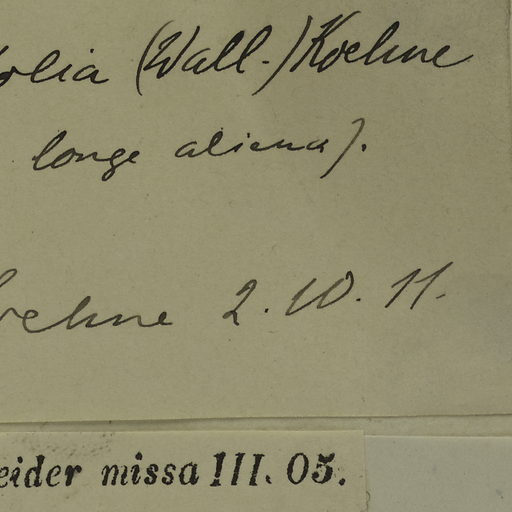 olia (Wall.) Koehne
longe aliena).
oehne 2.10.11.
eider missa III. 05.